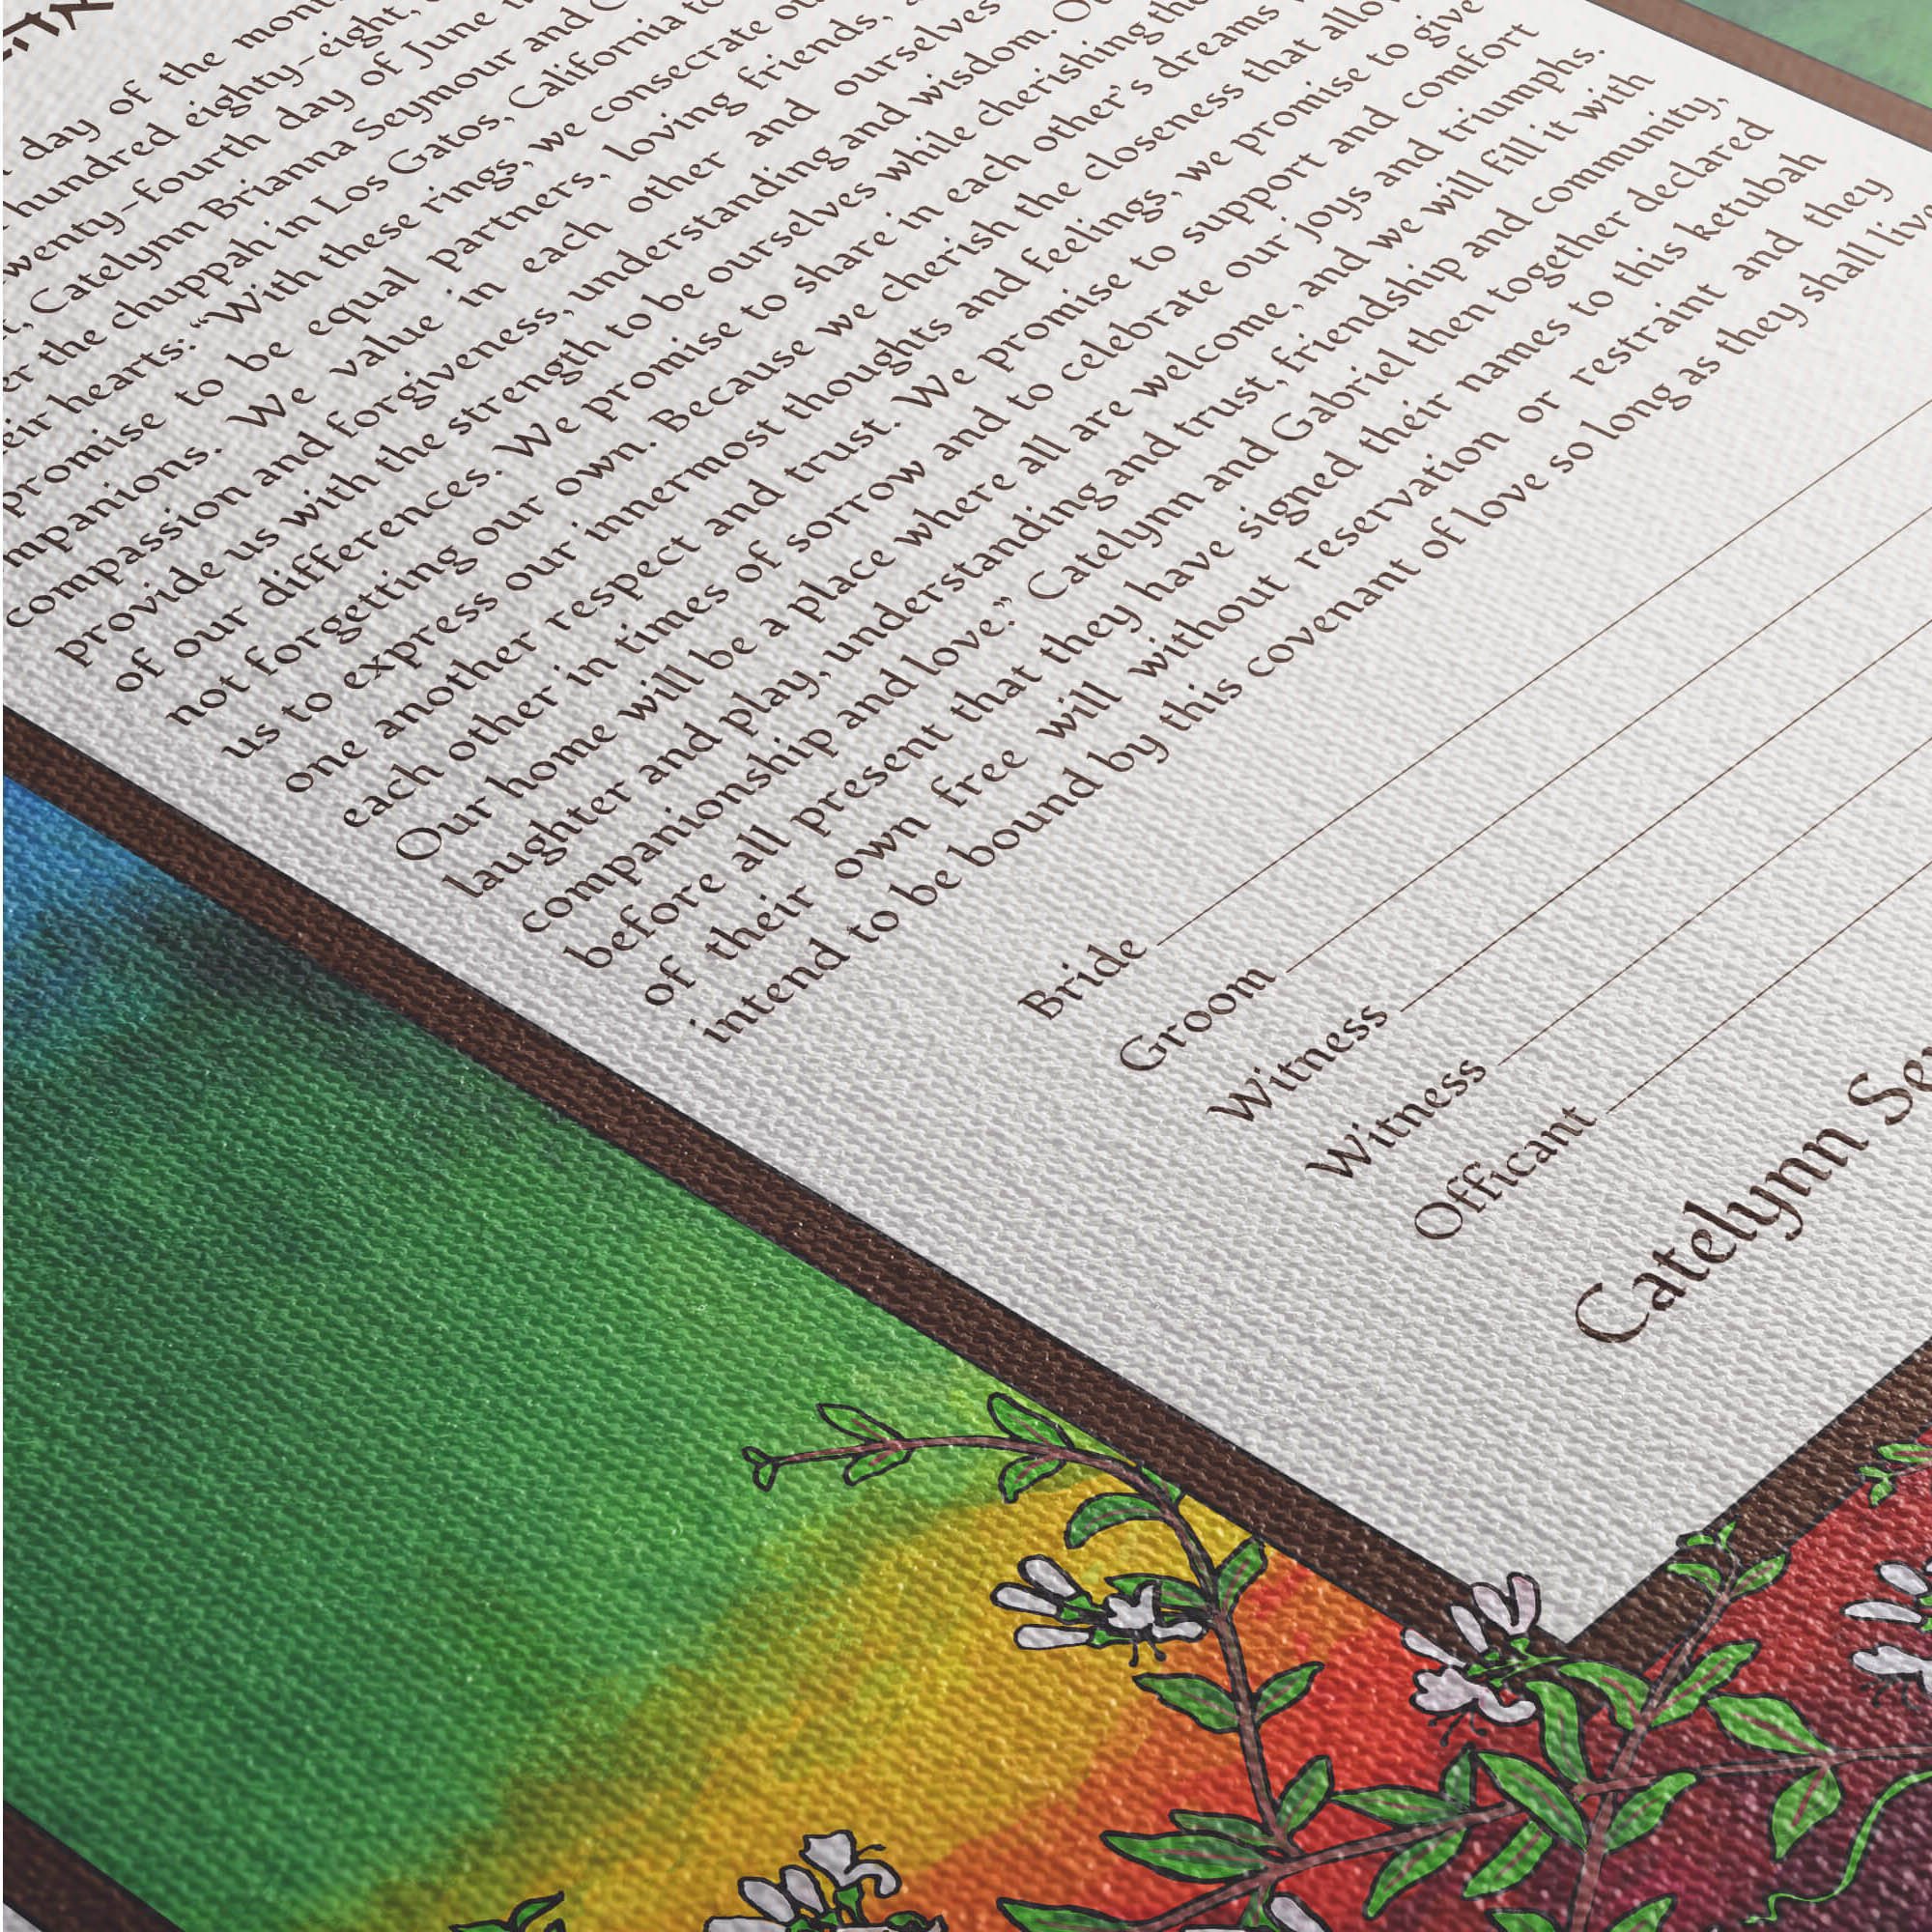 day of the mon
hundred eighty-eight,
wenty-fourth day of June
Catelynn Brianna Seymour and
er the chuppah in Los Gatos, California to
eir hearts: “With these rings, we consecrate ou
promise to be equal partners, loving friends,
mpanions. We value in each other and ourselves
compassion and forgiveness, understanding and wisdom.
provide us with the strength to be ourselves while cherishing the
of our differences. We promise to share in each other's dreams
not forgetting our own. Because we cherish the closeness that allo
us to express our innermost thoughts and feelings, we promise to give
one another respect and trust. We promise to support and comfort
each other in times of sorrow and to celebrate our joys and triumphs.
Our home will be a place where all are welcome, and we will fill it with
laughter and play, understanding and trust, friendship and community,
companionship and love.” Catelynn and Gabriel then together declared
before all present that they have signed their names to this ketubah
of their own free will without reservation or restraint and they
intend to be bound by this covenant of love so long as they shall liv
Bride
Groom
Witness
Witness
Officant
Catelynn Se